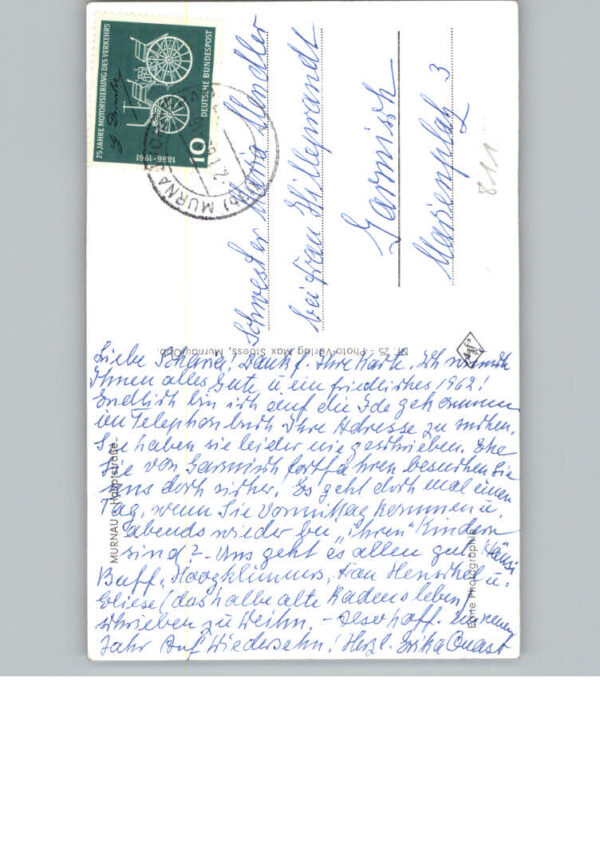 75 JAHRE MOTORISIERUNG DES VERKEHRS
DEUTSCHE BUNDESPOST
1886-1961
10
MURNAU
Schwester Maria Mendler
bei Frau Hilleprandt
Garmisch
Marienplatz 3
811
Nr. 25 - Photo-Verlag Max Stoess, Murnau/Obb.
Agfa
MURNAU - Hauptstraße
Echte Photographie
Liebe! Dank f. Ihre Karte. Ich wünsch
Ihnen alles Gute u. ein friedliches 1962!
Endlich bin ich auf die Idee gekommen
im Telephonbuch Ihre Adresse zu suchen.
Sie haben sie leider nie geschrieben. Ehe
Sie von Garmisch fortfahren besuchen Sie
uns doch sicher. Es geht doch mal einen
Tag, wenn Sie Vormittag kommen u.
abends wieder bei "Ihren" Kindern
sind? - Uns geht es allen gut. Hänsi
Buff, Frau Henschel u.
(das halbe alte Kadensleben)
schrieben zu Weihn. - hoff. im neuen
Jahr Auf Wiedersehn! Herzl. Erika Quast